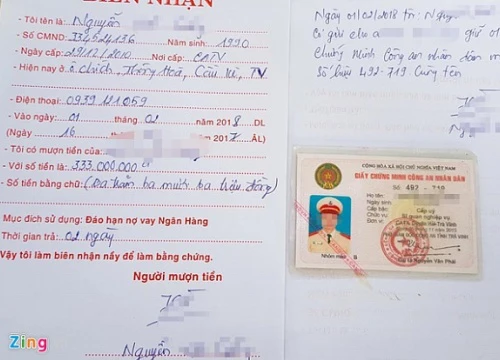 BIÊN NHẬN
- Tôi tên là: Nguyễn
- Số CMND: 334524136 Năm sinh: 1990
- Ngày cấp: 29/12/2010 Nơi cấp: CATV
- Hiện nay ở: Chích, Thông Hoà, Cầu Kè, TV
- Điện thoại: 0939141059
- Vào ngày: 01 tháng 02 năm 2018 DL
(Ngày 16 năm 2017 ÂL)
- Tôi có mượn tiền của
- Với số tiền là: 333.000.000 đ
- Số tiền bằng chữ: (Ba trăm ba mươi ba triệu đồng)
Mục đích sử dụng: Đáo hạn nợ vay Ngân Hàng
Thời gian trả: 02 ngày
Vậy tôi làm biên nhận nầy để làm bằng chứng.
Người mượn tiền
Nguyễn
Ngày 01/02/2018 tôi: Nguy
Có gửi giữ 01
Chứng Minh Công an nhân dân
Số hiệu 492-719 Cùng tên
Nguyễn
CỘNG HÒA XÃ HỘI CHỦ NGHĨA VIỆT NAM
GIẤY CHỨNG MINH CÔNG AN NHÂN DÂN
Số 492 - 719
Họ tên:
Cấp bậc:
Chức vụ: Sĩ quan nghiệp vụ
Đơn vị:
Nhóm máu: B
Đại tá Nguyễn Văn Phải
Zing